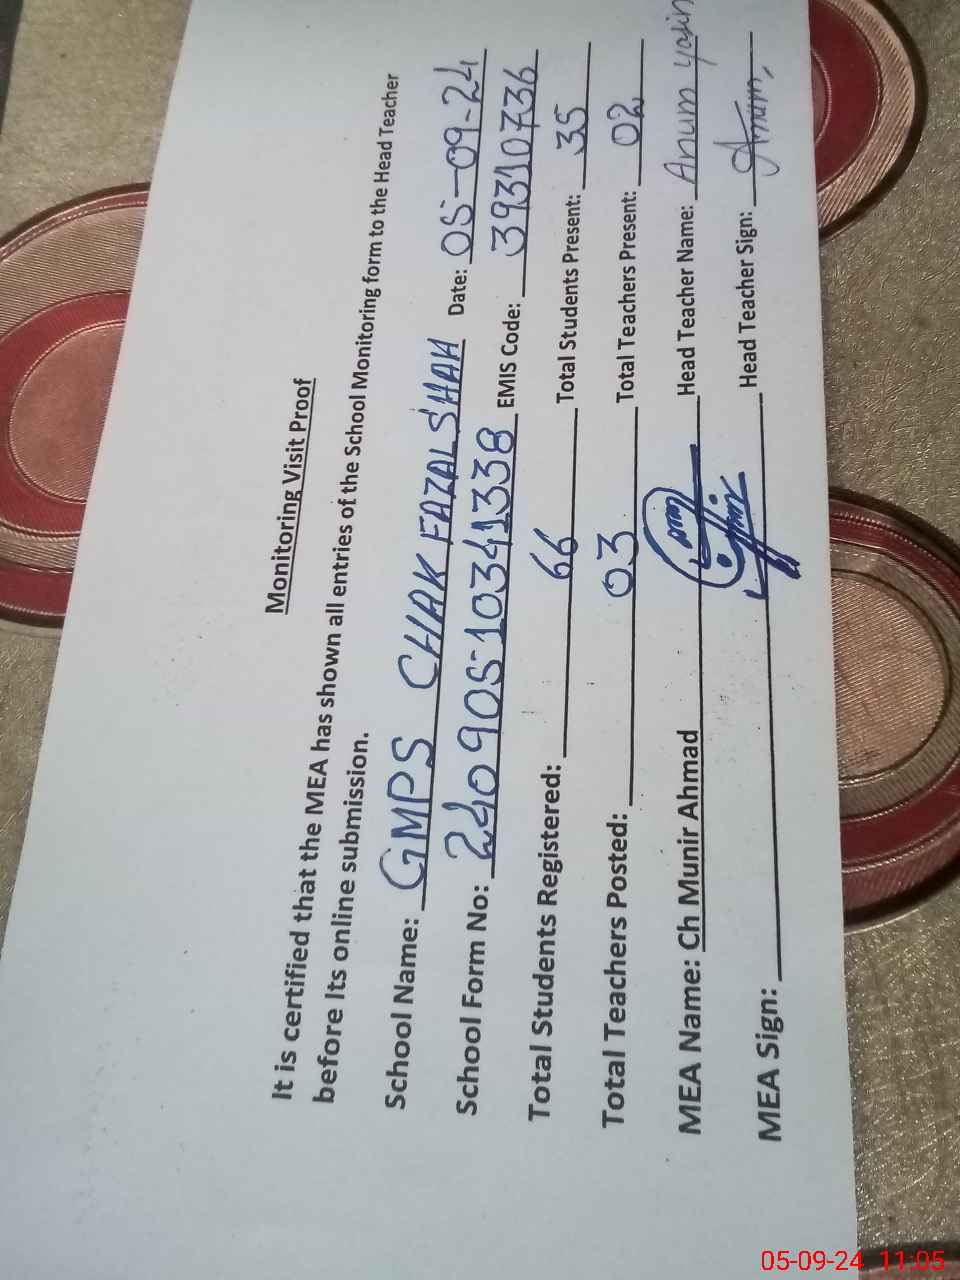 Monitoring Visit Proof
It is certified that the MEA has shown all entries of the School Monitoring form to the Head Teacher
before Its online submission.
School Name: GMPS CHAK FAZAL SHAH Date: 05-09-24
School Form No: 240905-10341338 EMIS Code: 39310736
Total Students Registered: 66 Total Students Present: 35
Total Teachers Posted: 03 Total Teachers Present: 02
MEA Name: Ch Munir Ahmad Head Teacher Name: Anum yasin
MEA Sign: Head Teacher Sign: Anum,
05-09-24 11:05